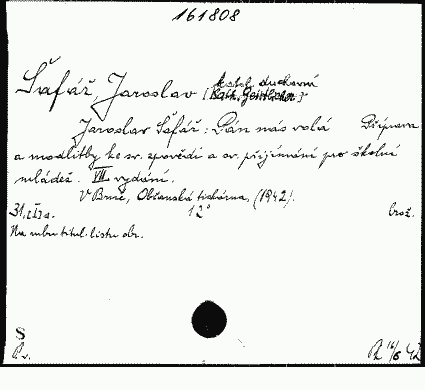 161808
Šafář, Jaroslav [katol. duchovní
Kath. Geistlicher]
Jaroslav Šafář: Pán nás volá Příprava
a modlitby ke sv. zpovědi a sv. přijímání pro školní
mládež. VIII. vydání.
V Brně, Občanská tiskárna, (1942).
31, [I] s. 12° brož.
Na rubu titul. listu obr.
S
16/6 42